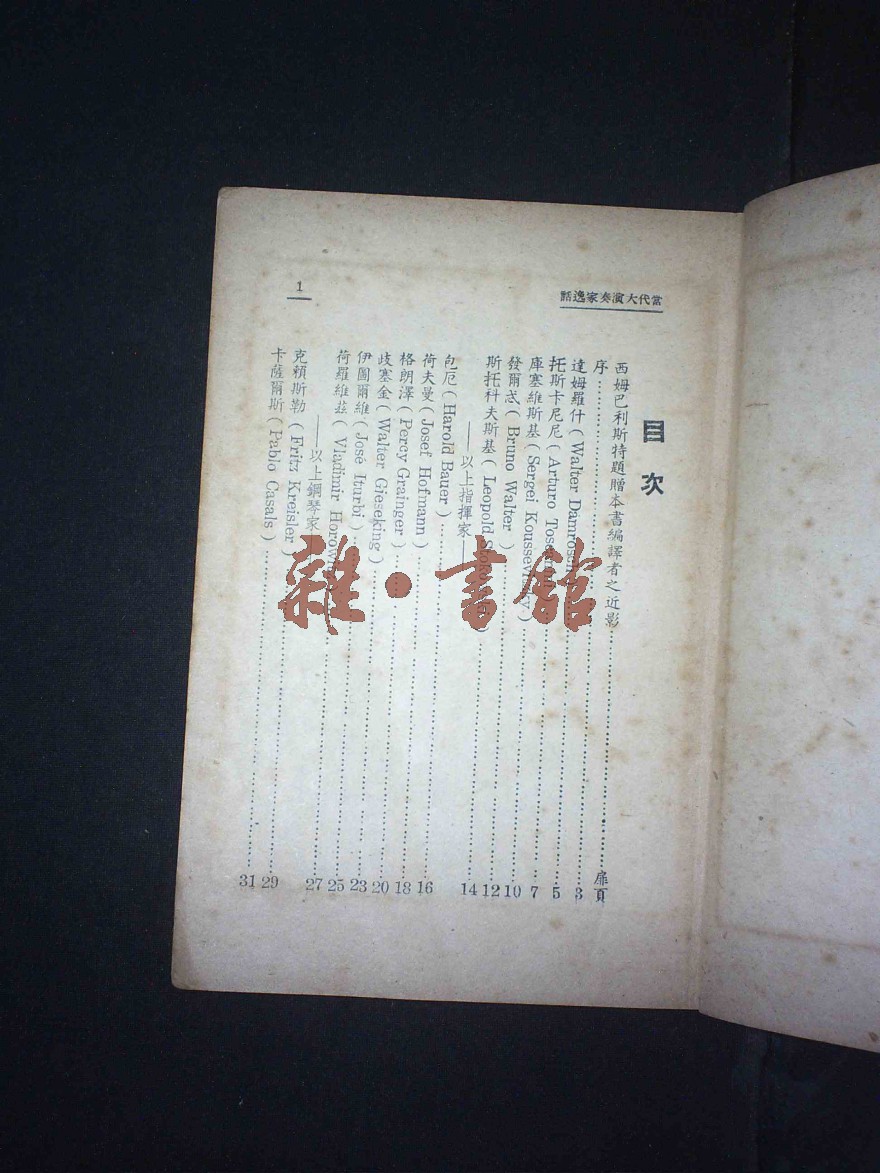 當代大演奏家逸話
1
目次
西姆巴利斯特題贈本書編譯者之近影……扉頁
序……3
達姆羅什(Walter Damrosch)……5
托斯卡尼尼(Arturo……7
庫塞維斯基(Sergei Koussevitzky)……10
發爾忒(Bruno Walter)……12
斯托科夫斯基(Leopold……14
——以上指揮家——
包厄(Harold Bauer)……16
荷夫曼(Josef Hofmann)……18
格朗澤(Percy Grainger)……20
歧塞金(Walter Gieseking)……23
伊圖爾維(José Iturbi)……25
荷羅維茲(Vladimir Horowitz)……27
——以上鋼琴家——
克賴斯勒(Fritz Kreisler)……29
卡薩爾斯(Pablo Casals)……31
雜·書館